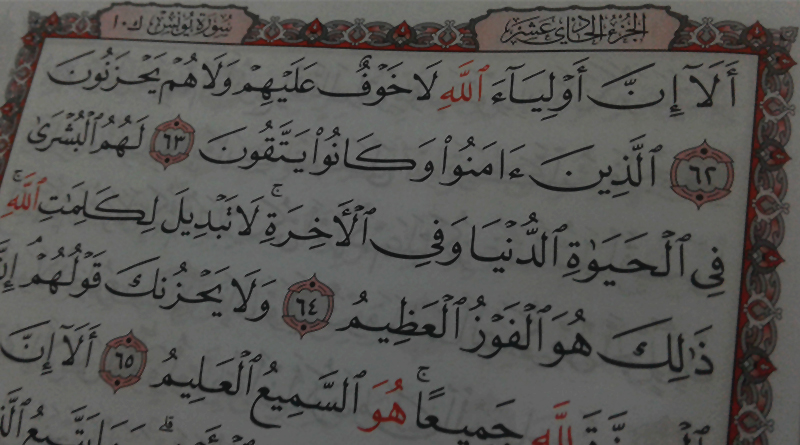 الجزء الحادي عشر
سورة يونس ١٠
أَلَآ إِنَّ أَوْلِيَآءَ ٱللَّهِ لَا خَوْفٌ عَلَيْهِمْ وَلَا هُمْ يَحْزَنُونَ
٦٢ ٱلَّذِينَ ءَامَنُوا۟ وَكَانُوا۟ يَتَّقُونَ ٦٣ لَهُمُ ٱلْبُشْرَىٰ
فِى ٱلْحَيَوٰةِ ٱلدُّنْيَا وَفِى ٱلْءَاخِرَةِ ۚ لَا تَبْدِيلَ لِكَلِمَٰتِ ٱللَّهِ ۚ
ذَٰلِكَ هُوَ ٱلْفَوْزُ ٱلْعَظِيمُ ٦٤ وَلَا يَحْزُنكَ قَوْلُهُمْ ۘ إِنَّ
لِلَّهِ جَمِيعًا ۚ هُوَ ٱلسَّمِيعُ ٱلْعَلِيمُ ٦٥ أَلَآ إِنَّ